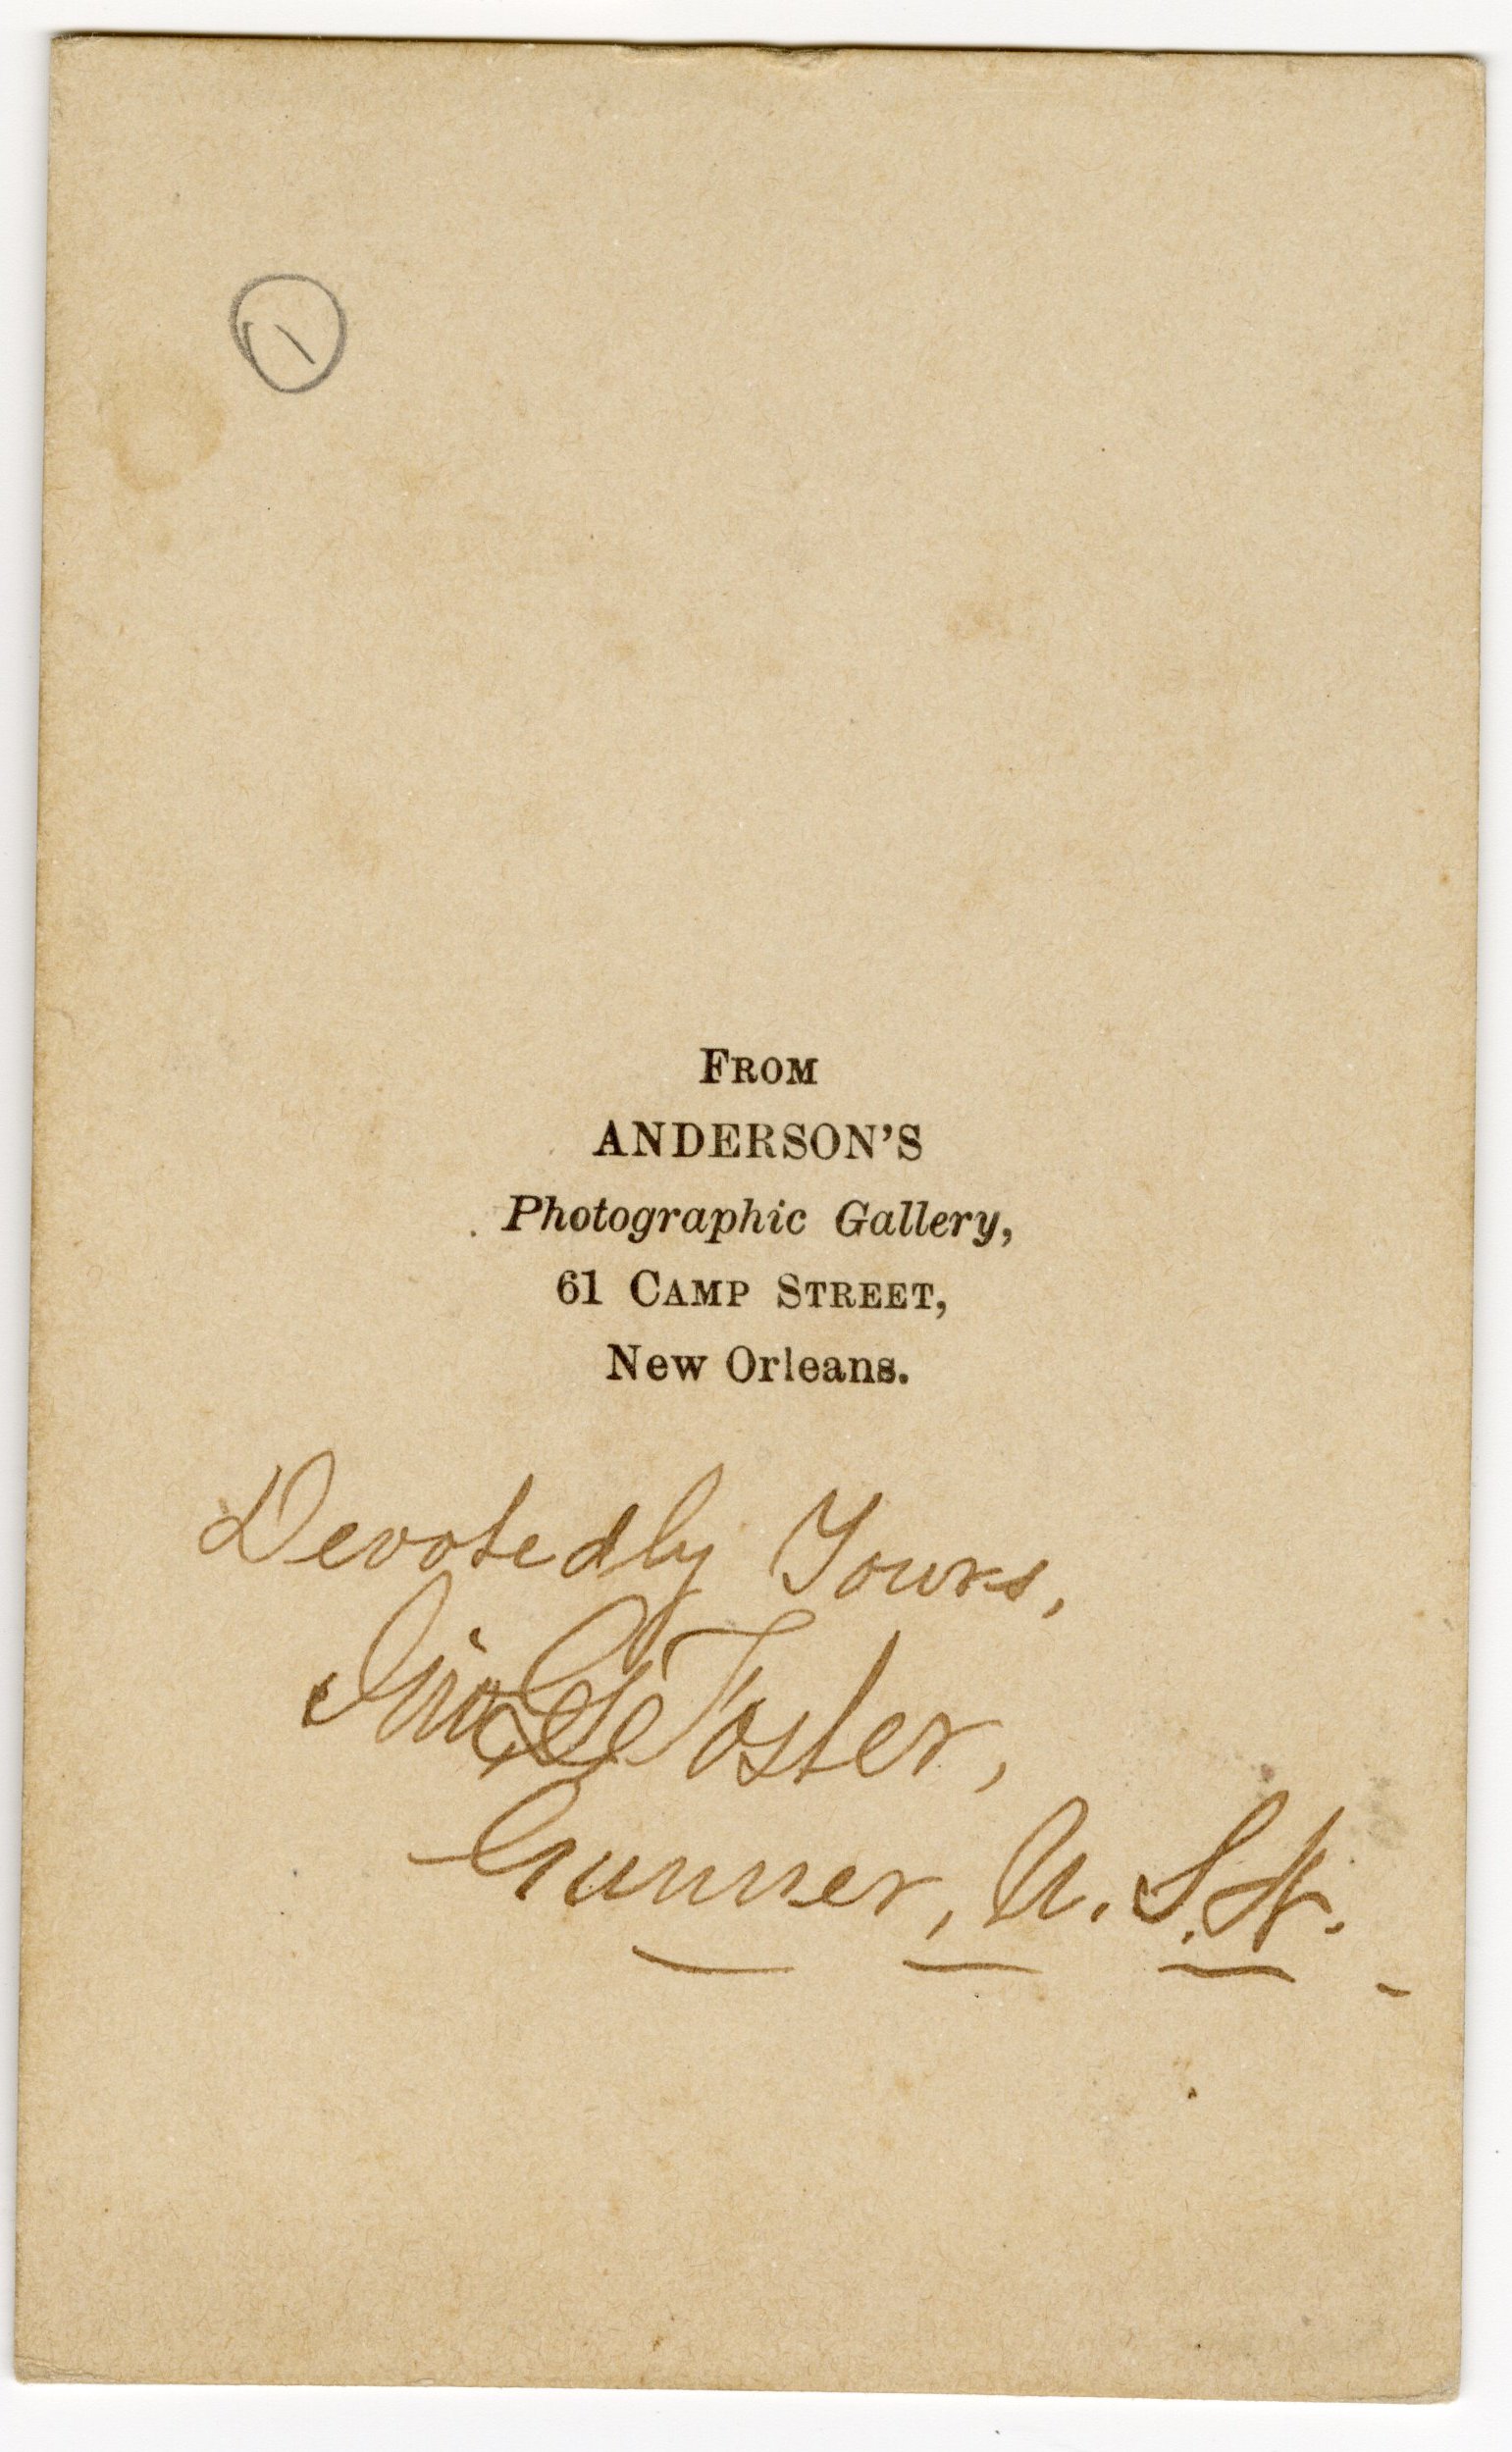 FROM
ANDERSON'S
Photographic Gallery,
61 CAMP STREET,
New Orleans.
Devotedly Yours,
Foster,
Gunner, U.S.N.